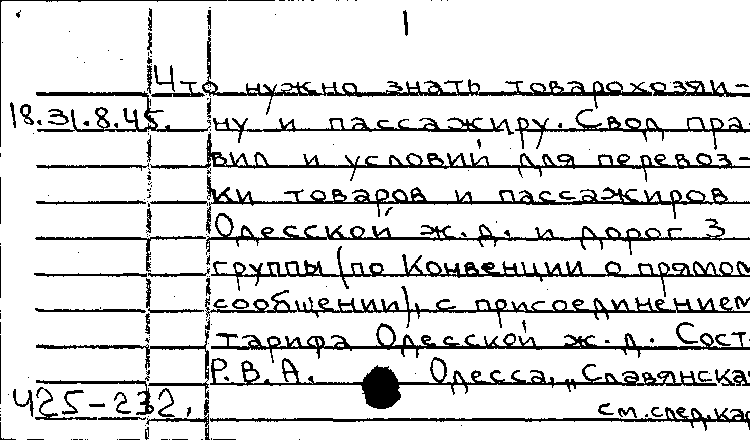 1
Что нужно знать товарохозяи-
18.31.8.45. ну и пассажиру. Свод пра-
вил и условий для перевоз-
ки товаров и пассажиров
Одесской ж.д. и дорог 3
группы (по Конвенции о прямом
сообщении), с присоединением
тарифа Одесской ж.д. Сост.
Р.В.А. Одесса, „Славянская
425-232. см.след.кар